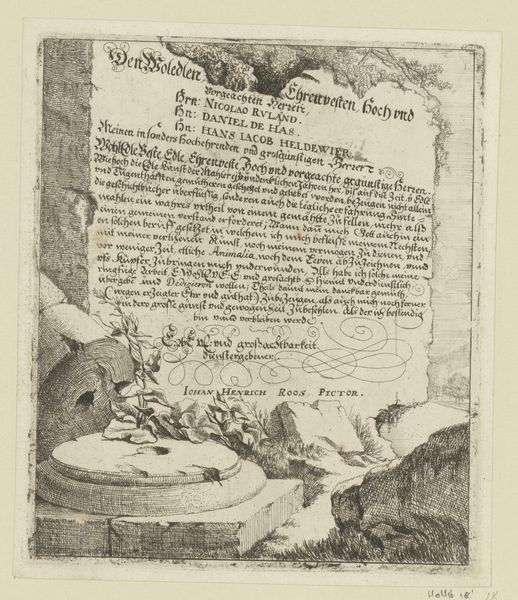 Den Woledlen
Ehrenvesten Hoch vnd
Vorgeachten Herren,
Hrn: NICOLAO RVLAND.
Hn: DANIEL DE HAS.
Hn: HANS IACOB HELDEWIER.
Meinen in sonders Hochehrenden vnd grosgünstigen Herren
Wohl Edle Veste Edle, Ehrenveste Hoch vnd vorgeachte gegünstige Herren.
Wie hoch die Edle Kunst der Mahlerey von denklichen Jahren her, bis auf die Zeit, von Edlen
vnd Tugenthafften gemüthern geschetzet vnd geliebet worden, bezeugen nicht allein
die geschichtbücher überflüssig, sondern auch die tägliche erfahrung
mahlen ein wahres vrtheil von einem gemählte zu fellen, mehr als
einen gemeinen verstand erfordert; Wann dan mich Gott auch in ein
en solchen beruff gesetzet in welchem ich mich befleisse meinem Nechsten
mit meiner verliehenen Kunst, noch meinem vermögen zu dienen, vnd
vor weniger Zeit etliche Animalia, noch dem Leben abzuzeichnen, vnd
vfs Kupfer zubringen mich vnderwunden. Als habe ich solche meine
ringfüge arbeit hiemit vnderdienstlich
übergeben vnd Dedicieren wollen; theils damit mein danckbar gemüth,
(wegen erzeigter Ehr vnd guthat) Zubezeugen, als auch mich noch ferner
in dero grosse gunst vnd gewogenheit Zubefehlen. Als der ich bestendig
bin vnnd verbleiben werde
vnd großachtbarkeit
dienstergebener
IOHAN HENRICH ROOS PICTOR.